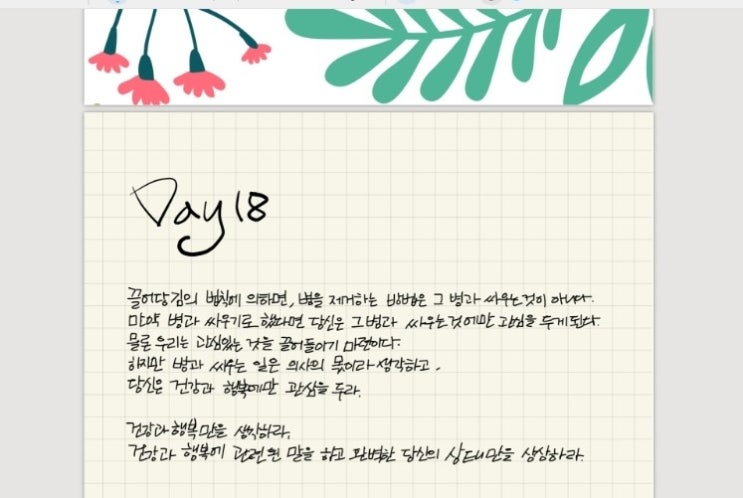 Day 18
끌어당김의 법칙에 의하면, 병을 제거하는 방법은 그 병과 싸우는것이 아니다.
만약 병과 싸우기로 했다면 당신은 그병과 싸우는것에만 관심을 두게된다.
물론 우리는 관심있는 것을 끌어들이기 마련이다.
하지만 병과 싸우는 일은 의사의 몫이라 생각하고,
당신은 건강과 행복에만 관심을 두라.
건강과 행복만을 생각하라.
건강과 행복에 관련된 말을 하고 완벽한 당신의 상태만을 상상하라.